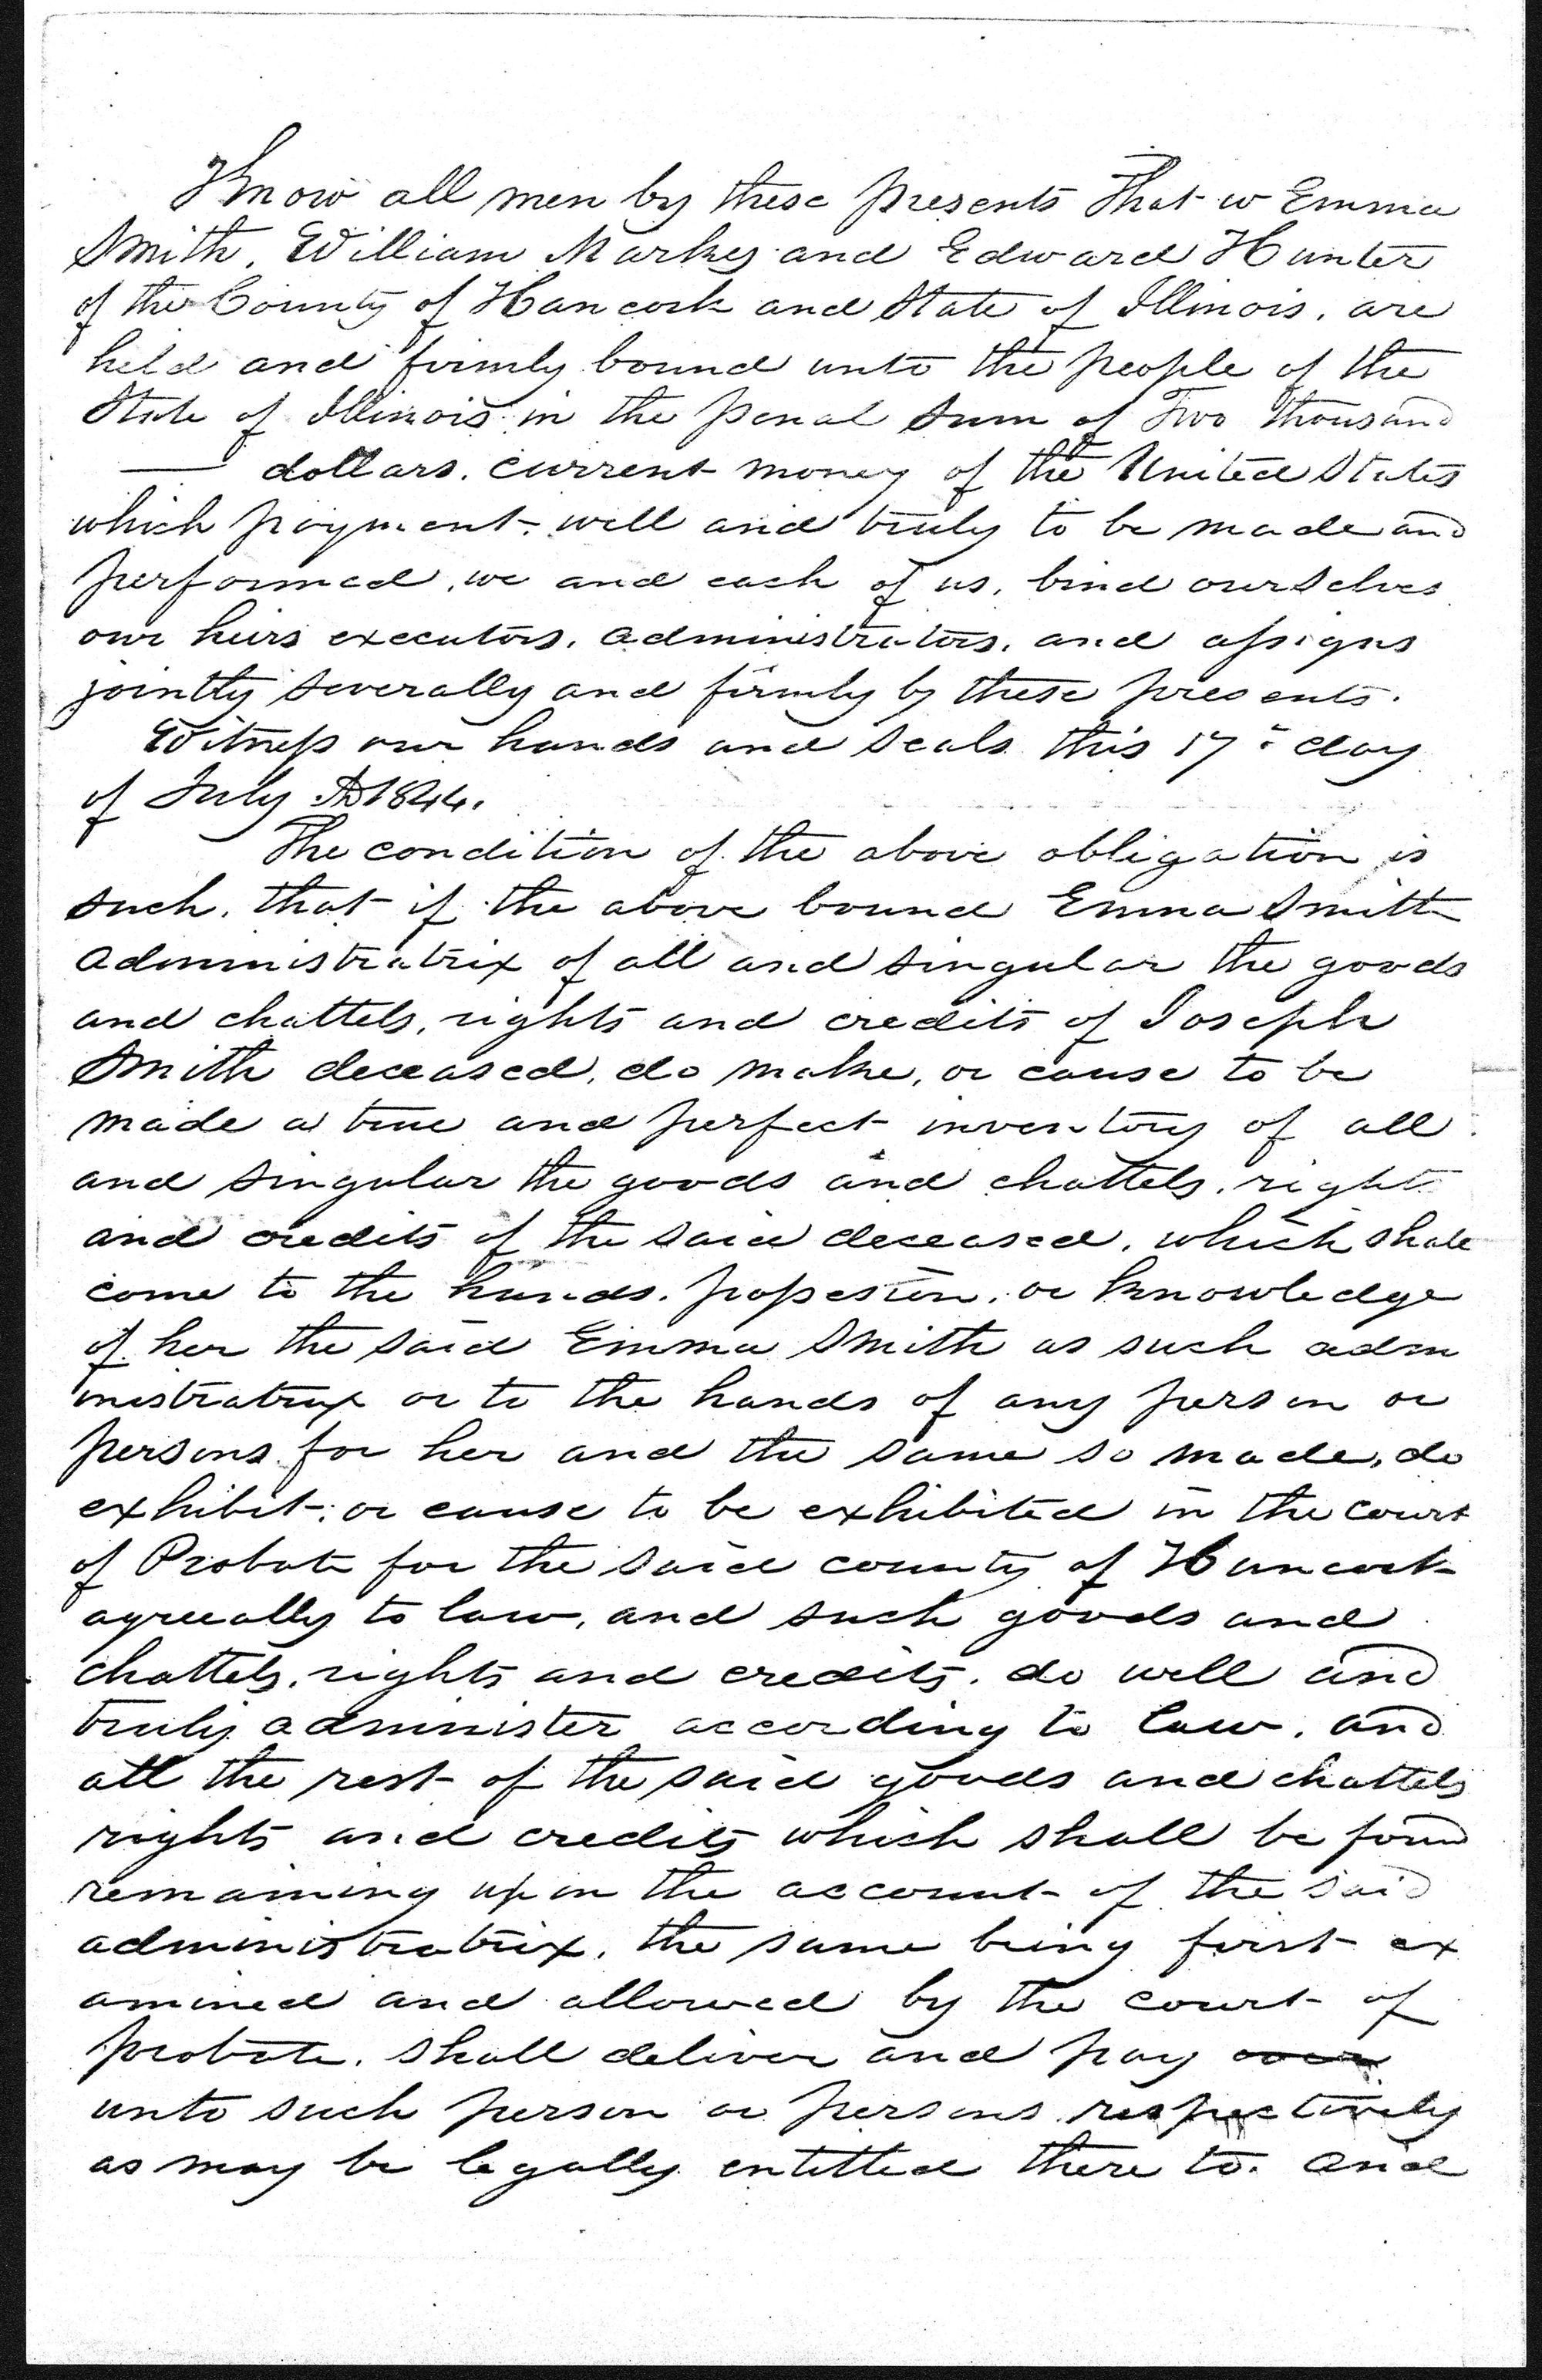 Know all men by these presents That w Emma
Smith, William Marks and Edward Hunter
of the County of Hancock and State of Illinois, are
held and firmly bound unto the people of the
State of Illinois in the penal sum of Two thousand
— dollars, current money of the United States
which payment, well and truly to be made and
performed, we and each of us, bind ourselves
our heirs executors, administrators, and assigns
jointly severally and firmly by these presents.
Witness our hands and seals this 17 day
of July AD 1844.
The condition of the above obligation is
such, that if the above bound Emma Smith
administratrix of all and singular the goods
and chattels, rights and credits of Joseph
Smith deceased, do make, or cause to be
made a true and perfect inventory of all
and singular the goods and chattels, right
and credits of the said deceased, which shall
come to the hands, possesion, or knowledge
of her the said Emma Smith as such adm
inistratrix or to the hands of any person or
persons for her and the same so made, do
exhibit, or cause to be exhibited in the court
of Probate for the said county of Hancock
agreeally to law, and such goods and
chattels, rights and credits, do well and
truly administer according to law, and
all the rest of the said goods and chattels
rights and credits which shall be found
remaining upon the account of the said
administratrix, the same being first ex
amined and allowed by the court of
probate, shall deliver and pay over
unto such person or persons respectively
as may be legally entitled there to. and